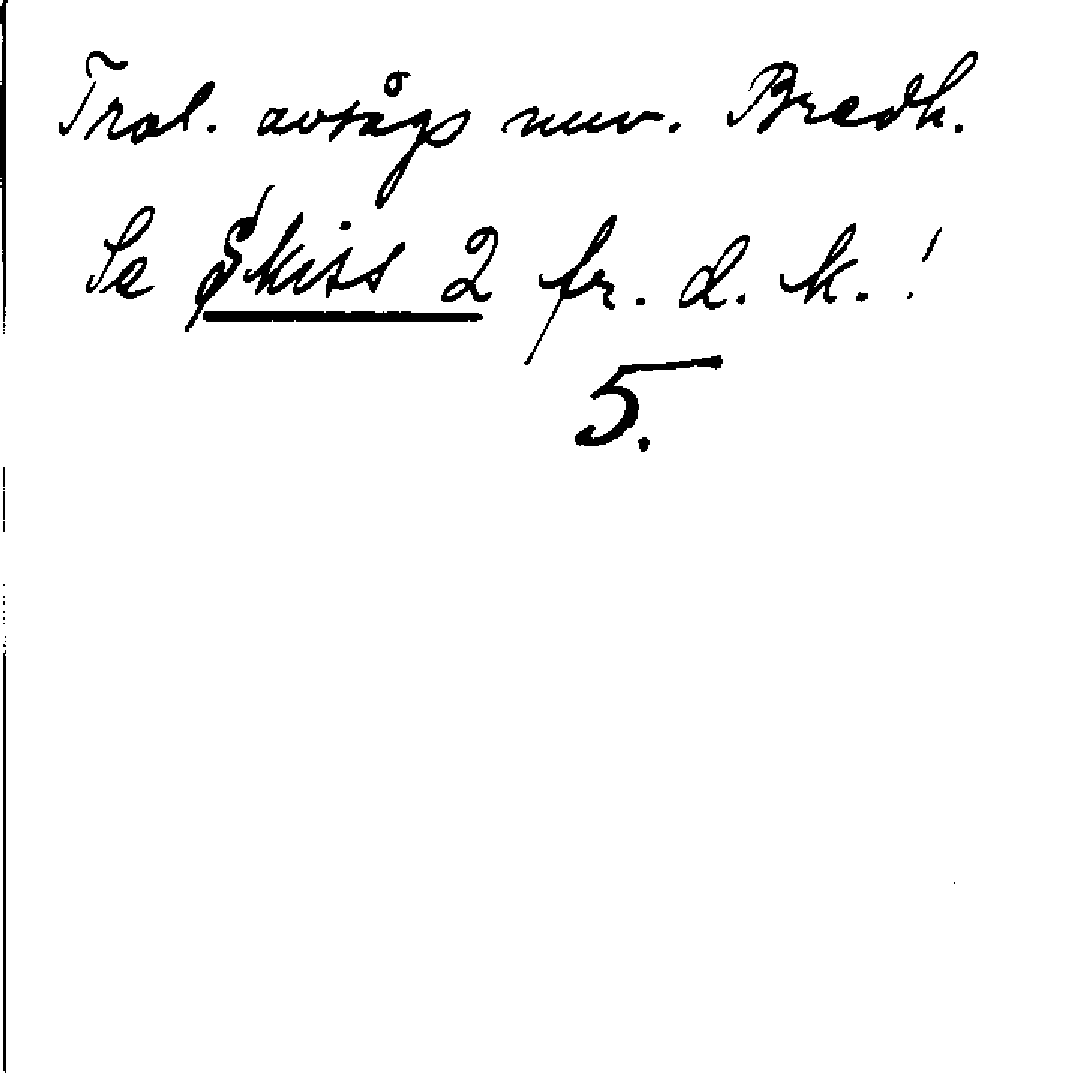 Trol. avtågs nuv. Bredh.
Se Skiss 2 fr. d. k.!
5.